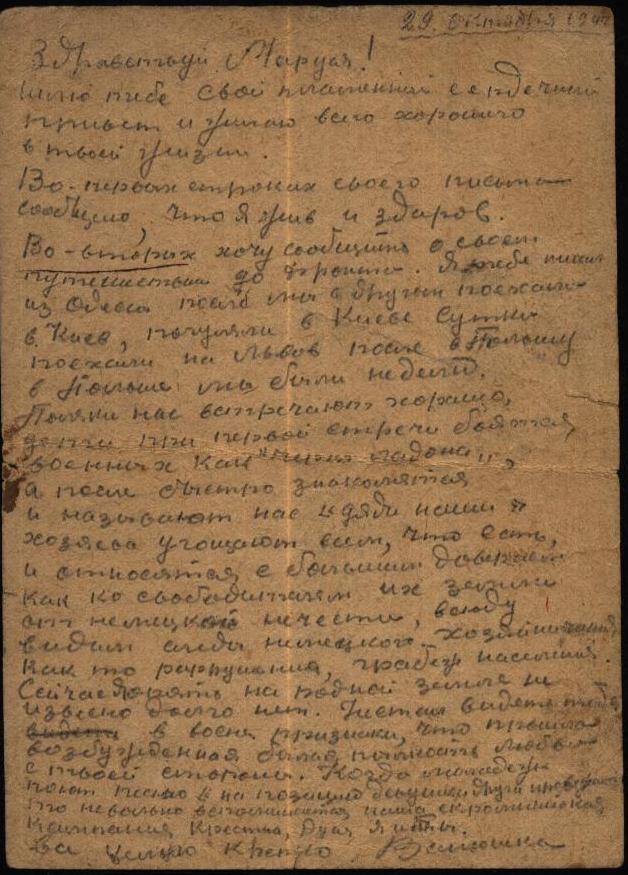 29. октября 194
Здравствуй Маруся!
Шлю тебе свой пламенный сердечный
привет и желаю всего хорошего
в твоей жизни.
Во-первых строках своего письма
сообщаю, что я жив и здаров.
Во-вторых хочу сообщить о своем
путешествии до фронта. Я тебе писал
из Одеса после мы с другом поехали
в Киев, погуляли в Киеве сутки
поехали на Львов после в Польшу
в Польше мы были неделю.
Поляки нас встречают хорошо,
дети при первой встречи боятся
военных как "черт ладона",
а после быстро знакомятся
и называют нас "дяди наши"
хозяева угощают всем, что есть,
и относятся с большим доверием
как ко свободителем их земли
от немецкой нечисти, всюду
видим следы немецкого хозяйничания
как то разрушения, грабеж населения.
Сейчас опять на родной земле и
известно долго нет. Числа видеть тебя
в восне признаки, что прошла
возбужденная былая любовь
с твоей стороны. Когда молодежь
поют песню "на позицию девушка
то невольно вспоминается наша скромницкая
кампания Крестна, Дуся я и ты.
За целую крепко Ванюшка